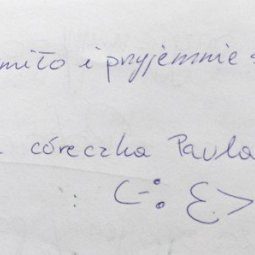 miło i przyjemnie
córeczka Paula
(-: